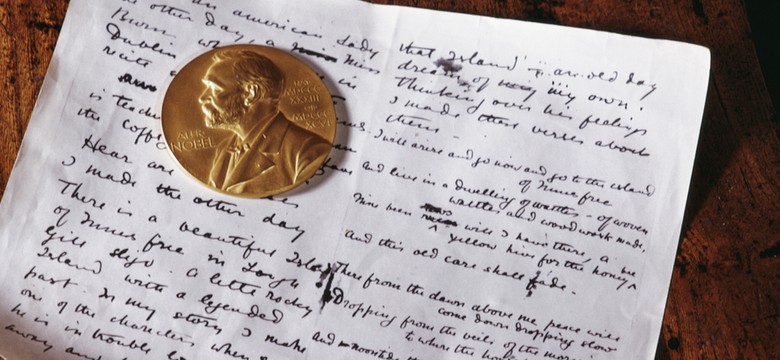 an american lady
other day, a Miss
Burn
Dublin who in
rate
is teach
the coff
Hear are
I made the other day
There is a beautiful Isla
of Innis free in Lough
Gill Sligo. A little rocky
Island with a legended
past. In my story I make
one of the characters when
he is in trouble lo
away and
ALFR·
NOBEL
NAT·
MDCCC
XXXIII
OB·
MDCCC
XCVI
that Island - an old day
dream of my own.
Thinking over his feelings
I made these verses about
them -
I will arise and go now and go to the island
of Innis free
And live in a dwelling of wattles - of woven
wattles and wood work made,
Nine bean rows will I have there, a
yellow hive for the honey
And this old care shall fade.
There from the dawn above me peace will
come down dropping slow
Dropping from the veils of the mor
to where the hou
and noontide